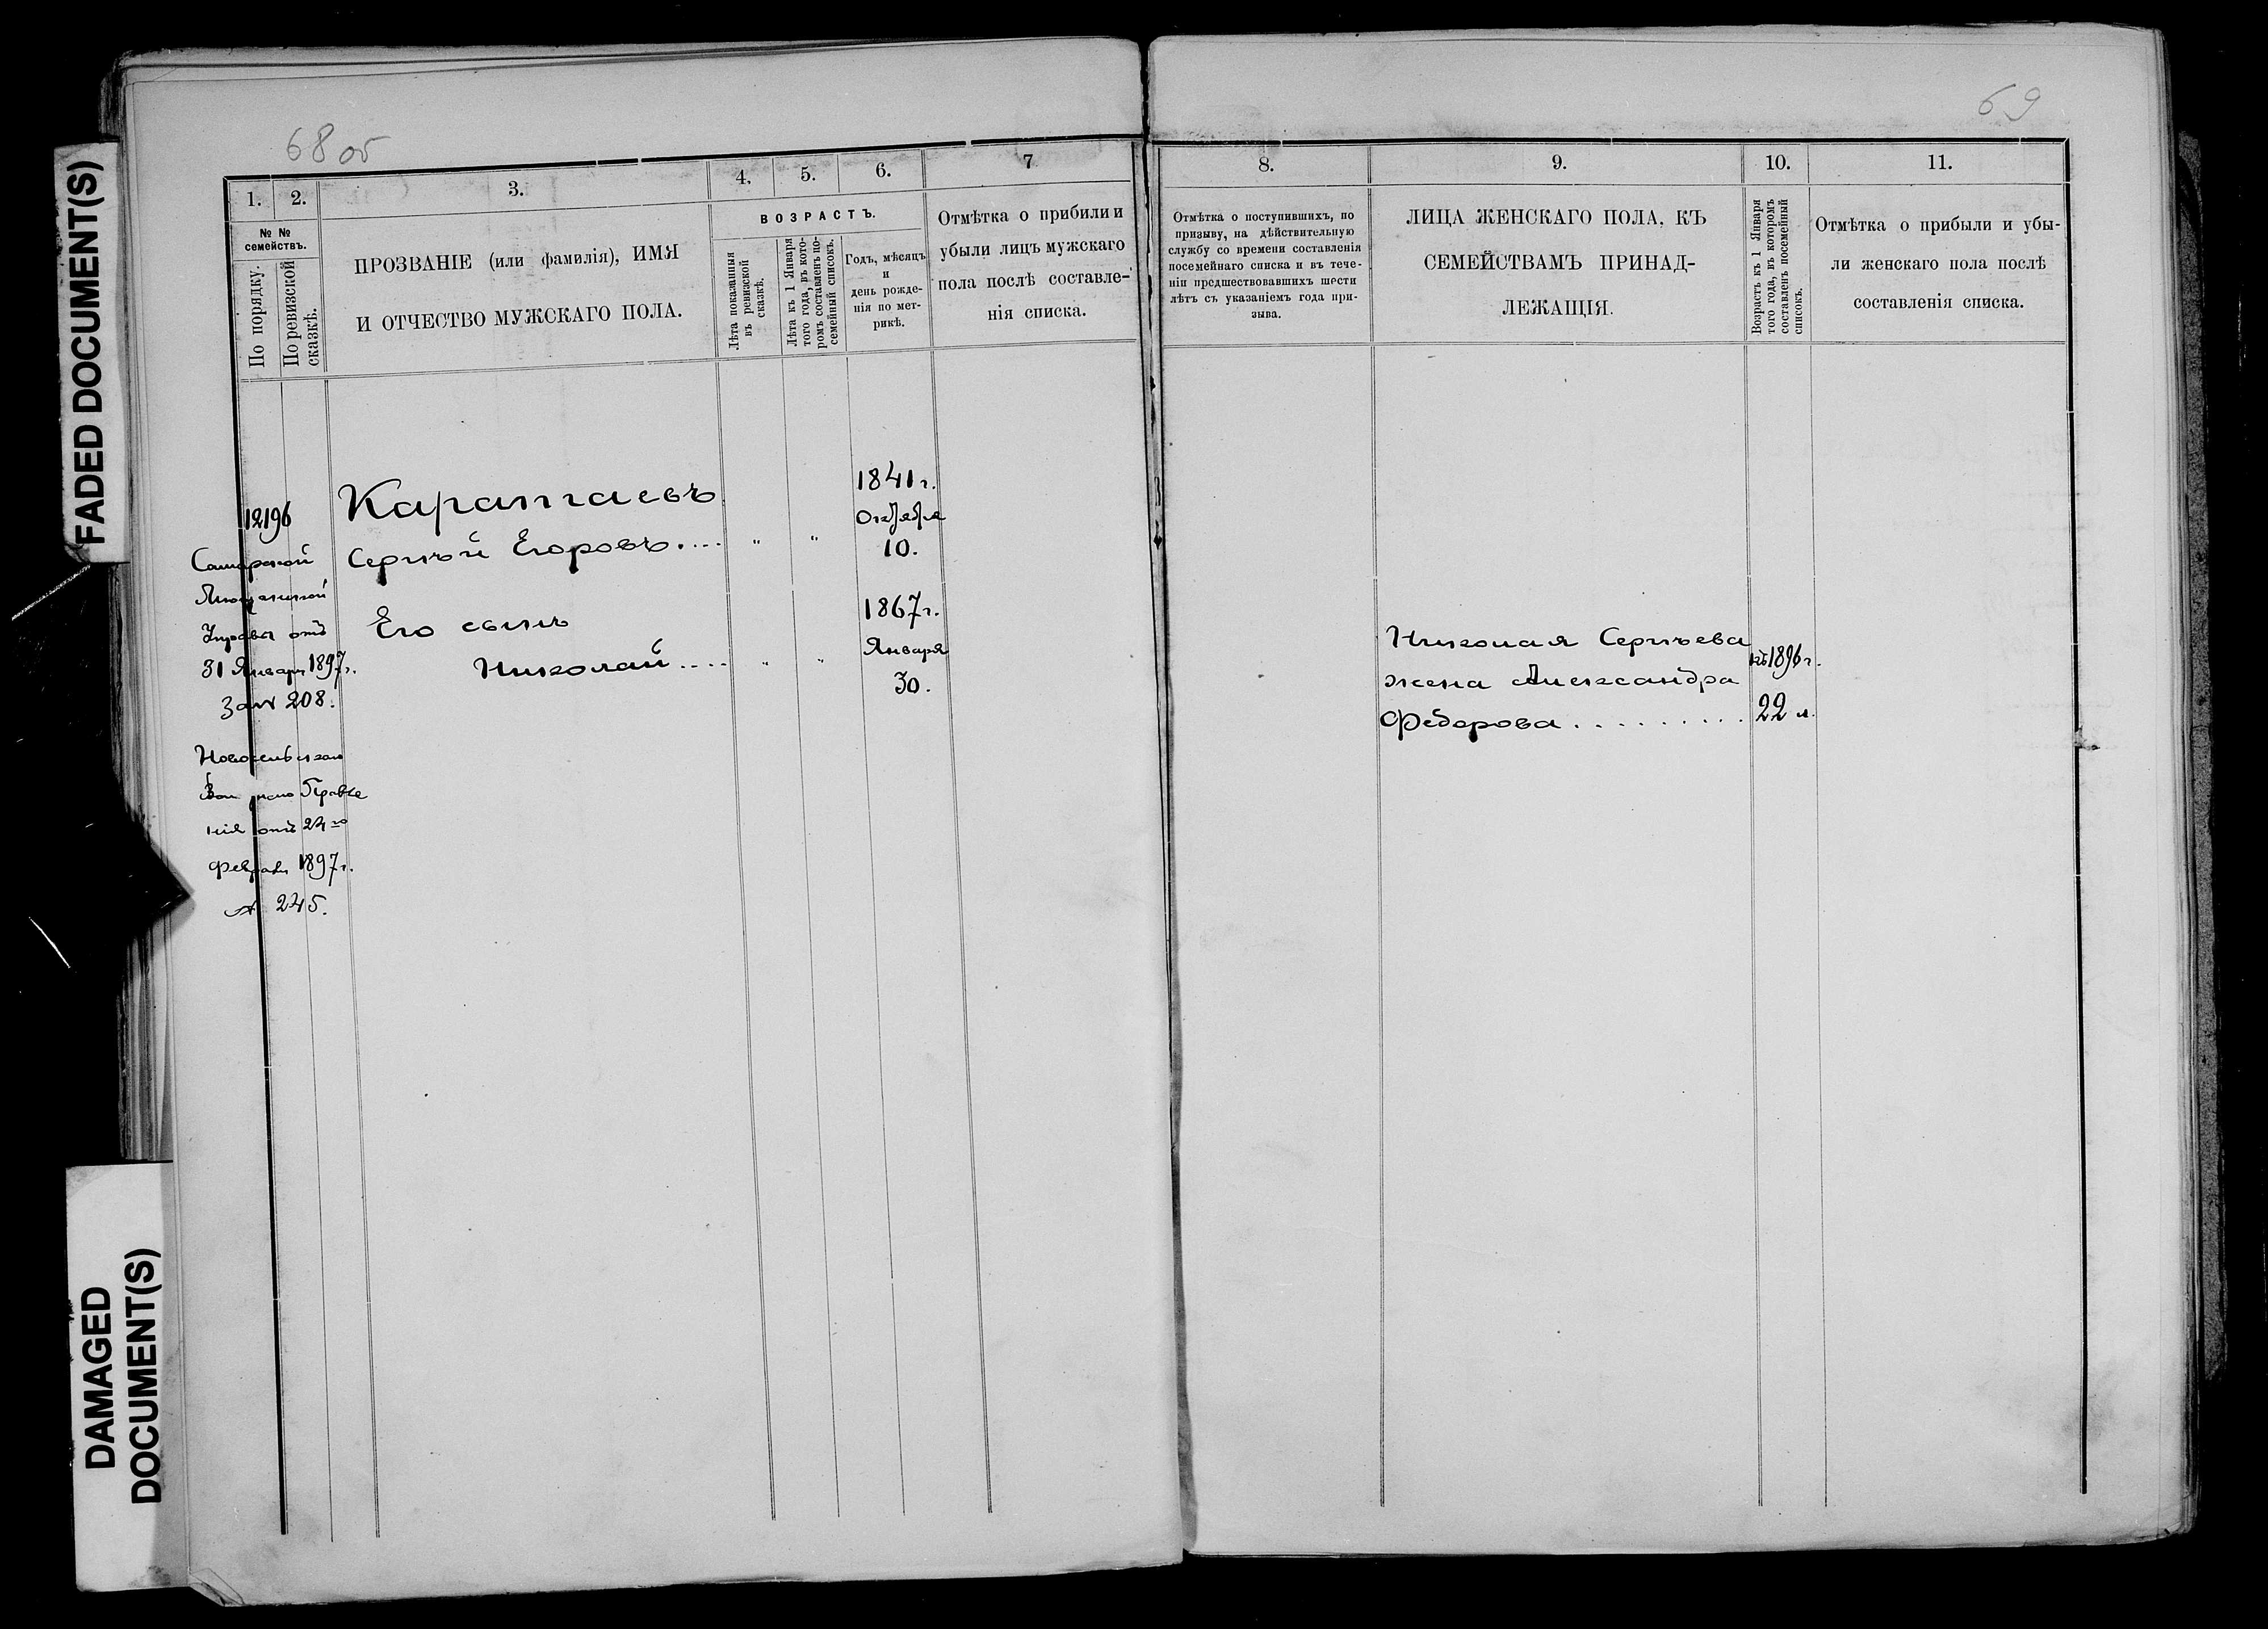 FADED DOCUMENT(S)
DAMAGED
DOCUMENT(S)
68 об
1.
2.
3.
4.
5.
6.
7
№ №
семействъ.
По порядку.
По ревизской
сказкѣ.
ПРОЗВАНІЕ (или фамилія), ИМЯ
И ОТЧЕСТВО МУЖСКАГО ПОЛА.
ВОЗРАСТЪ.
Лѣта показанныя
въ ревизской
сказкѣ.
Лѣта къ 1 Января
того года, въ кото-
ромъ составленъ по-
семейный списокъ.
Годъ, мѣсяцъ
и
день рожде-
нія по мет-
рикѣ.
Отмѣтка о прибили и
убыли лицъ мужскаго
пола послѣ составле-
нія списка.
12196
Самарской
Мѣщанской
Управы отъ
31 Января 1897 г.
за № 208.
отъ 24го
Февраля 1897 г.
№ 245.
Каратаевъ
Сергѣй Егоровъ....
" "
1841 г.
Октября
10.
Его сынъ
Николай....
" "
1867 г.
Января
30.
69
8.
9.
10.
11.
Отмѣтка о поступившихъ, по
призыву, на дѣйствительную
службу со времени составленія
посемейнаго списка и въ тече-
ніи предшествовавшихъ шести
лѣтъ съ указаніемъ года при-
зыва.
ЛИЦА ЖЕНСКАГО ПОЛА, КЪ
СЕМЕЙСТВАМЪ ПРИНАД-
ЛЕЖАЩІЯ.
Возрастъ къ 1 Января
того года, въ которомъ
составленъ посемейный
списокъ.
Отмѣтка о прибыли и убы-
ли женскаго пола послѣ
составленія списка.
Николая Сергѣева
жена Александра
Федорова.........
1896 г.
22 л.